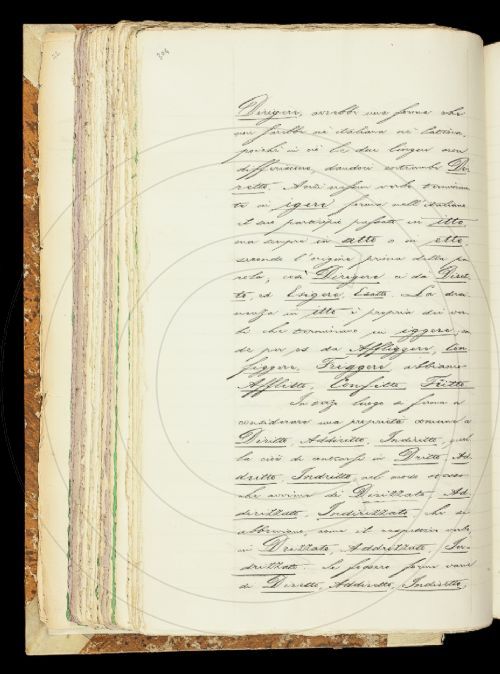 204
Dirigere, sarebbe una forma che
non sarebbe nè italiana nè latina,
poichè in ciò le due lingue non
differiscono, dandoci entrambe Di-
retto. Anzi nessun verbo termina-
to in igere forma nell'italiano
il suo participio passato in itto,
ma sempre in atto o in etto,
secondo l'origine prima della pa-
rola; così Dirigere ci dà Diret-
to, ed Esigere, Esatto. La desi-
nenza in itto è propria dei ver-
bi che terminano in iggere, on-
de per es. da Affliggere, Con-
figgere, Friggere, abbiamo
Afflitto, Confitto, Fritto.
In terzo luogo a forma a
considerare una proprietà comune a
Diritto, Addiritto, Indiritto, quel-
la cioè di contrarsi in Dritto, Ad-
dritto, Indritto, nel modo stesso
che avviene di Dirizzato, Ad-
dirizzato, Indirizzato, che si
abbreviano, come il rispettivo verbo
in Drizzato, Addrizzato, In-
drizzato. Se fossero forme varie
di Diretto, Addiretto, Indiretto,